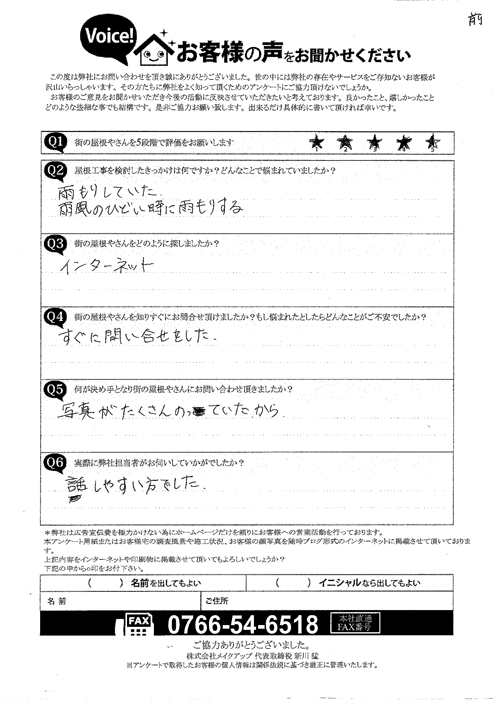 前
Voice!
お客様の声をお聞かせください
この度は弊社にお問い合わせを頂き誠にありがとうございました。世の中には弊社の存在やサービスをご存知ないお客様が
沢山いらっしゃいます。その方たちに弊社をよく知って頂くためのアンケートにご協力頂けないでしょうか。
お客様のご意見をお聞かせいただき今後の活動に反映させていただきたいと考えております。良かったこと、嬉しかったこと
どのような些細な事でも結構です。是非ご協力お願い致します。出来るだけ具体的に書いて頂ければ幸いです。
Q1 街の屋根やさんを5段階で評価をお願いします ★ ★ ★ ★ ★
Q2 屋根工事を検討したきっかけは何ですか?どんなことで悩まれていましたか?
雨もりしていた.
雨風のひどい時に雨もりする
Q3 街の屋根やさんをどのように探しましたか?
インターネット
Q4 街の屋根やさんを知りすぐにお問合せ頂けましたか?もし悩まれたとしたらどんなことがご不安でしたか?
すぐに問い合せをした.
Q5 何が決め手となり街の屋根やさんにお問い合わせ頂きましたか?
写真がたくさんのっていたから
Q6 実際に弊社担当者がお伺いしていかがでしたか?
話しやすい方でした.
*弊社は広告宣伝費を極力かけない為にホームページだけを頼りにお客様への営業活動を行っております。
本アンケート用紙またはお客様宅の調査風景や施工状況、お客様の顔写真を随時ブログ形式のインターネットに掲載させて頂いております。
上記内容をインターネットや印刷物に掲載させて頂いてもよろしいでしょうか?
下記の中から○印をお付下さい。
( )名前を出してもよい ( )イニシャルなら出してもよい
名前 ご住所
FAX 0766-54-6518 本社直通 FAX番号
ご協力ありがとうございました。
株式会社メイクアップ 代表取締役 新川 猛
※アンケートで取得したお客様の個人情報は関係法規に基づき厳正に管理いたします。